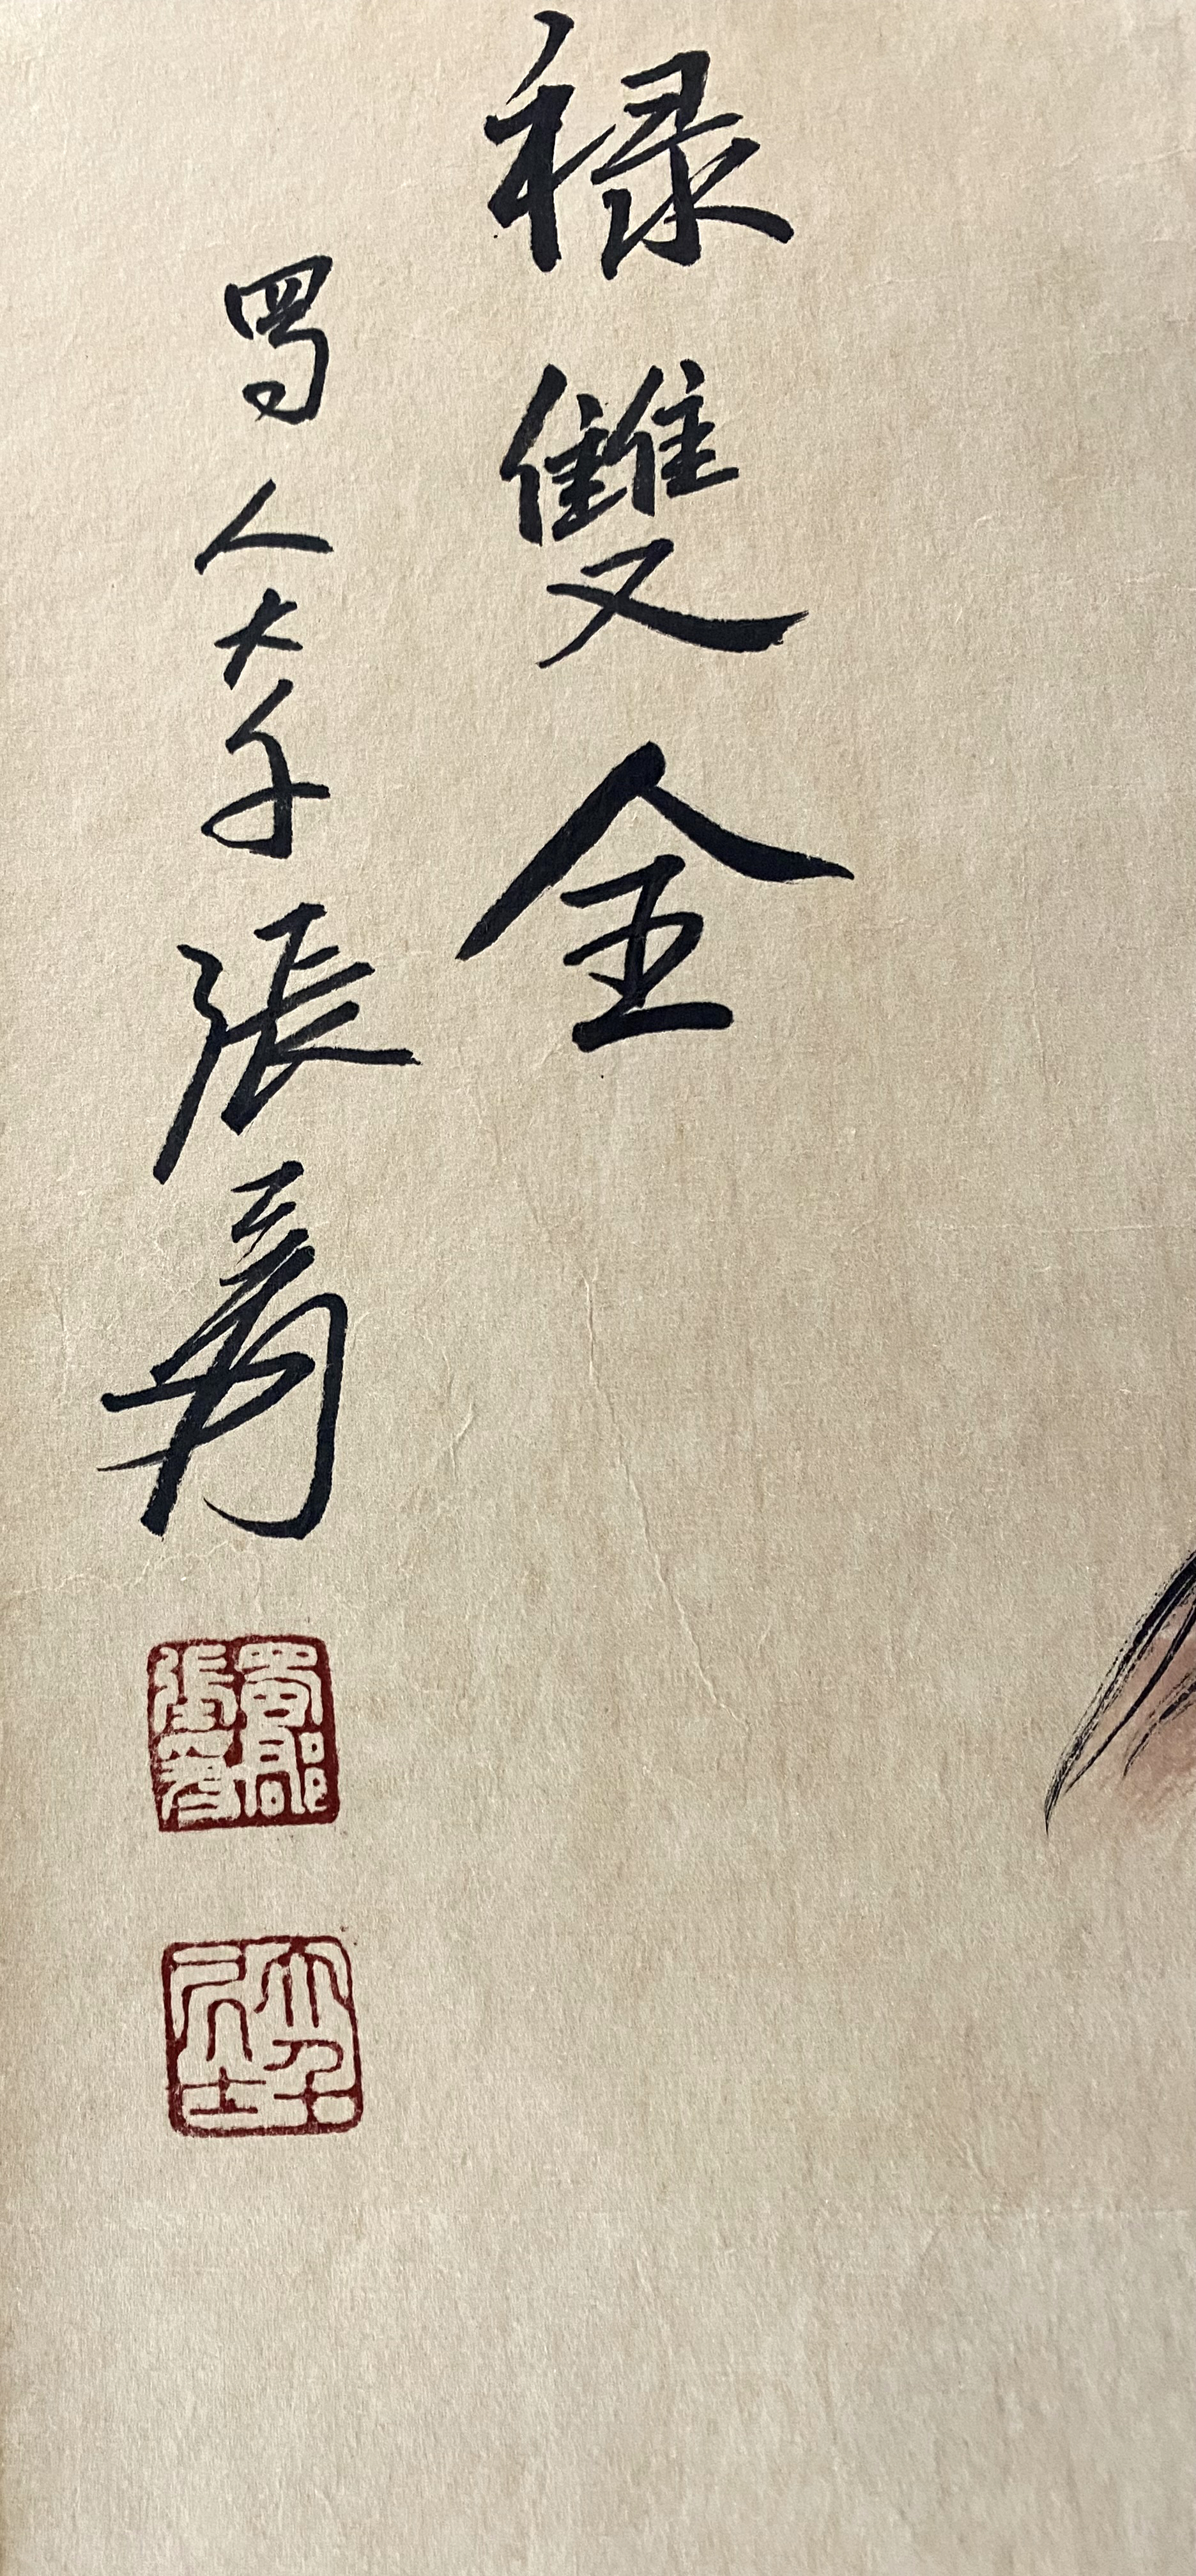 禄雙全
蜀人大千張爰
蜀郡
張爰
大千
居士